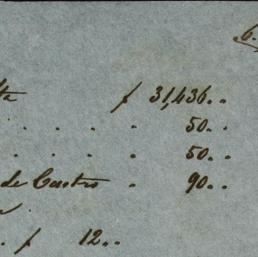 6.
lta f 31,436..
. . . . 50..
. . . . 50..
de Castro " 90..
. f 12..